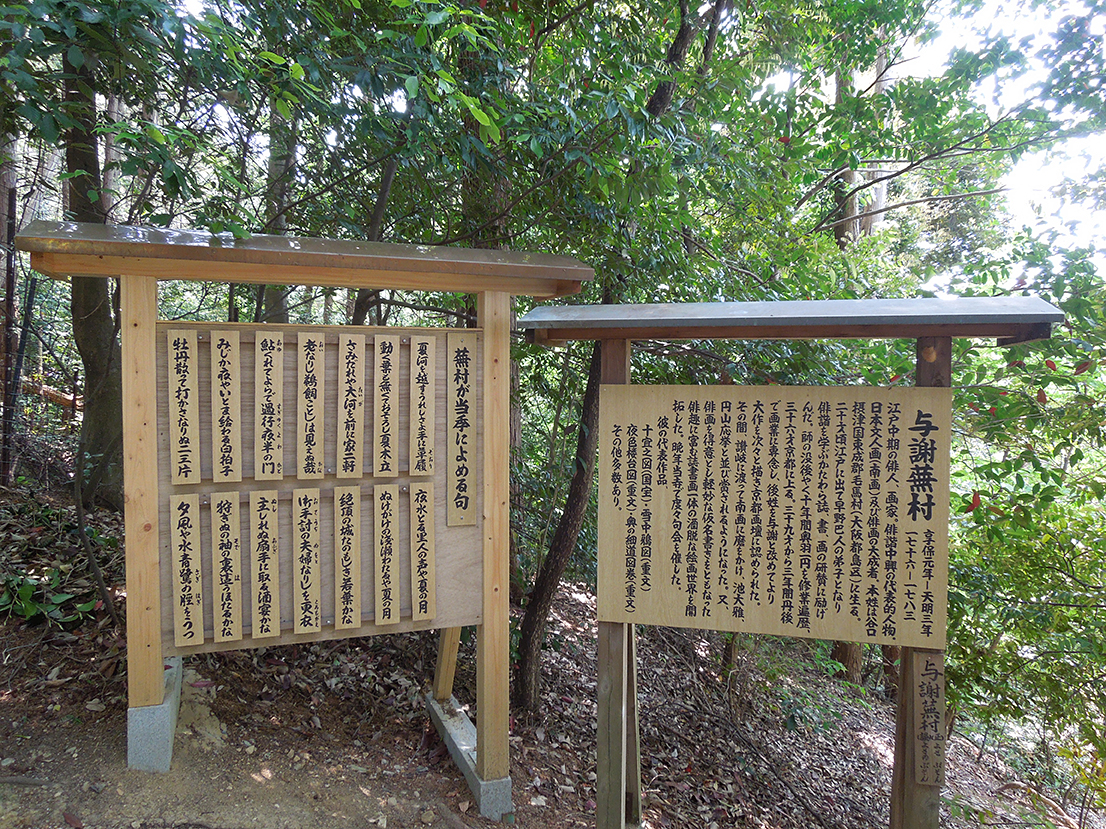 蕪村が当季によめる句
夏河を越すうれしさよ手に草履
動く葉も無くておそろし夏木立
さみだれや大河を前に家二軒
老なりし鵜飼ことしは見えぬ哉
鮎くれてよらで過行夜半の門
みじか夜やいとま給る白拍子
牡丹散て打かさなりぬ二三片
夜水とる里人の声や夏の月
ぬけがけの浅瀬わたるや夏の月
絶頂の城たのもしき若葉かな
御手討の夫婦なりしを更衣
主しれぬ扇手に取る酒宴かな
狩ぎぬの袖の裏這うほたるかな
夕風や水青鷺の脛をうつ
与謝蕪村
享保元年ー天明三年
一七十六ー一七八三
江戸中期の俳人、画家、俳諧中興の代表的人物、
日本文人画(南画)及び俳画の大成者、本姓は谷口
摂津国東成郡毛馬村(大阪都島辺)に生る。
二十才頃江戸に出て早野巴人の弟子になり
俳諧を学ぶかたわら詩、書、画の研賛に励げ
んだ。師の没後やく十年間奥羽一円を修業遍歴、
三十六才京都に上る。三十九才から三年間丹後
で画業に専念し、後姓を与謝と改めてより
大作を次々と描き京都画壇に認められた。
その間、讃岐に渡って南画に磨をかけ、池大雅、
円山応挙と並び称されるようになった。又、
俳画を得意とし軽妙な仮名書きをともなった
俳趣に富む詩書画一体の洒脱な絵画世界を開
拓した。晩年当寺で度々句会を催した。
彼の代表作品
十宜之図(国宝)・雪中鴉図(重文)
夜色楼台図(重文)・奥の細道図巻(重文)
その他多数あり。
与謝蕪村